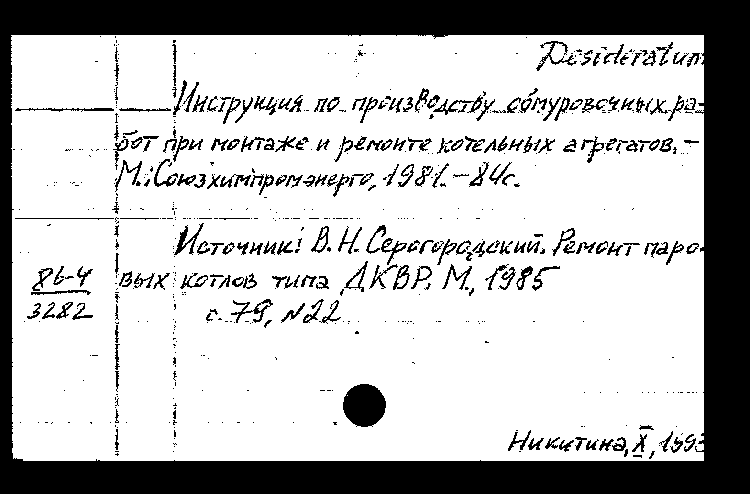 Desideratum
Инструкция по производству обмуровочных ра-
бот при монтаже и ремонте котельных агрегатов. –
М.: Союзхимпромэнерго, 1981. – 84с.
Источник: В. Н. Серогородский. Ремонт паро-
86-4 вых котлов типа ДКВР. М., 1985
3282 с. 79, №22
Никитина, X, 1993